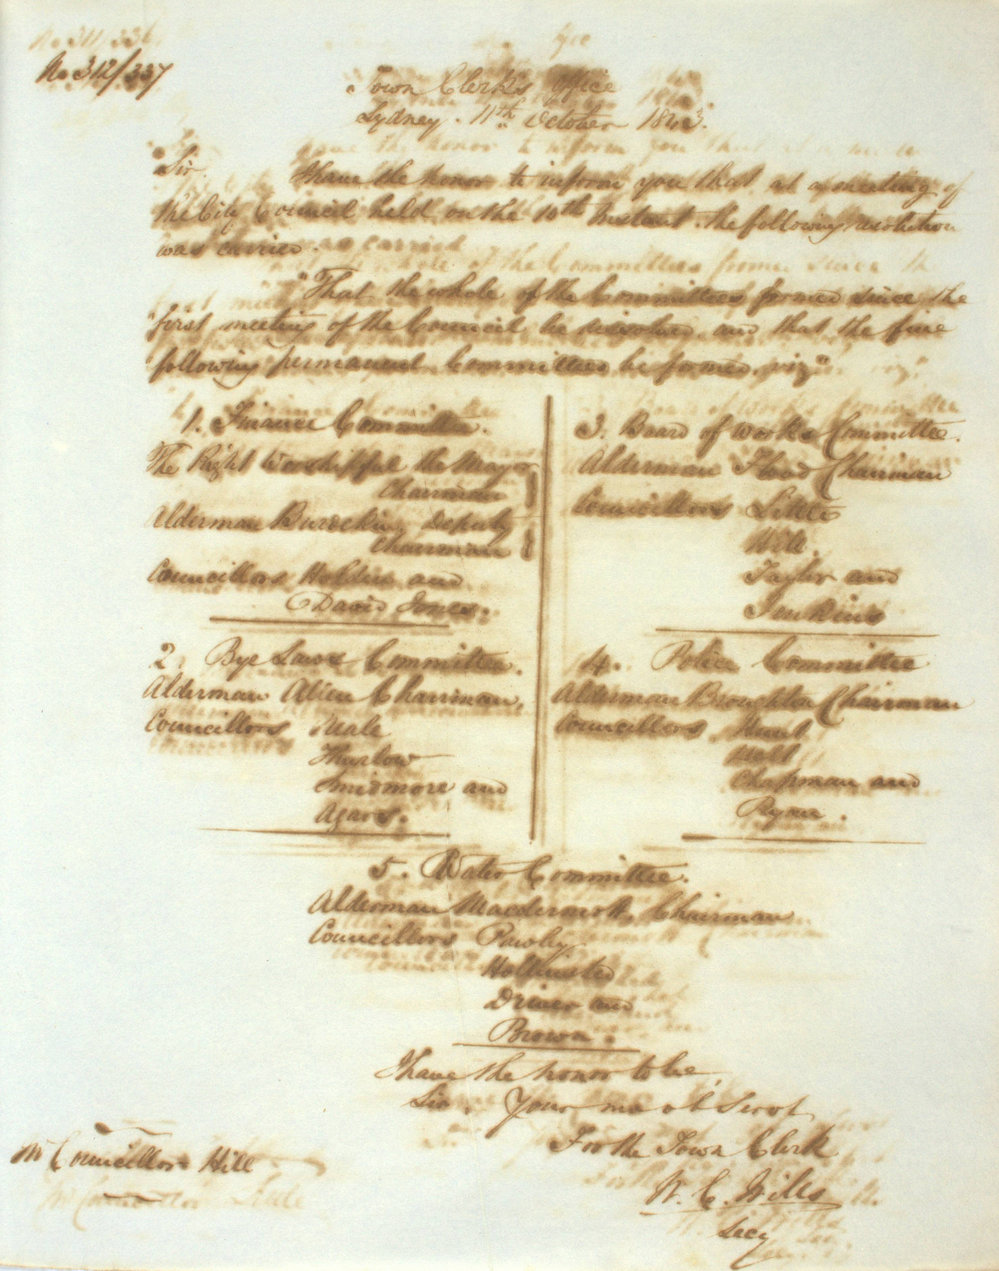 No 312/337
Town Clerk's Office
Sydney. 11th October 1843.
Sir
I have the honor to inform you that at a meeting of
the City Council held on the 10th Instant the following resolution
was carried.
"That the whole of the Committees formed since the
first meeting of the Council be and that the five
following permanent Committees be formed viz"
1. Finance Committee.
The Right Worshipful the Mayor
Chairman
Alderman deputy
Chairman
Councillors Holden and
David Jones.
2. Bye Laws Committee.
Alderman Allen Chairman,
Councillors Neale
Thurlow
Smidmore and
Agars.
3. Board of Works Committee.
Alderman Flood Chairman
Councillors Little
Hill
Taylor and
Jenkins
4. Police Committee
Alderman Broughton Chairman
Councillors Hunt
Holt
Chapman and
Ryan.
5. Water Committee.
Alderman Macdermott Chairman
Councillors Pawley
Driver and
Brown.
I have the honor to be,
Sir, Your mo ob Servt
For the Town Clerk
W. C. Wills
Secy
Mr Councillor Hill